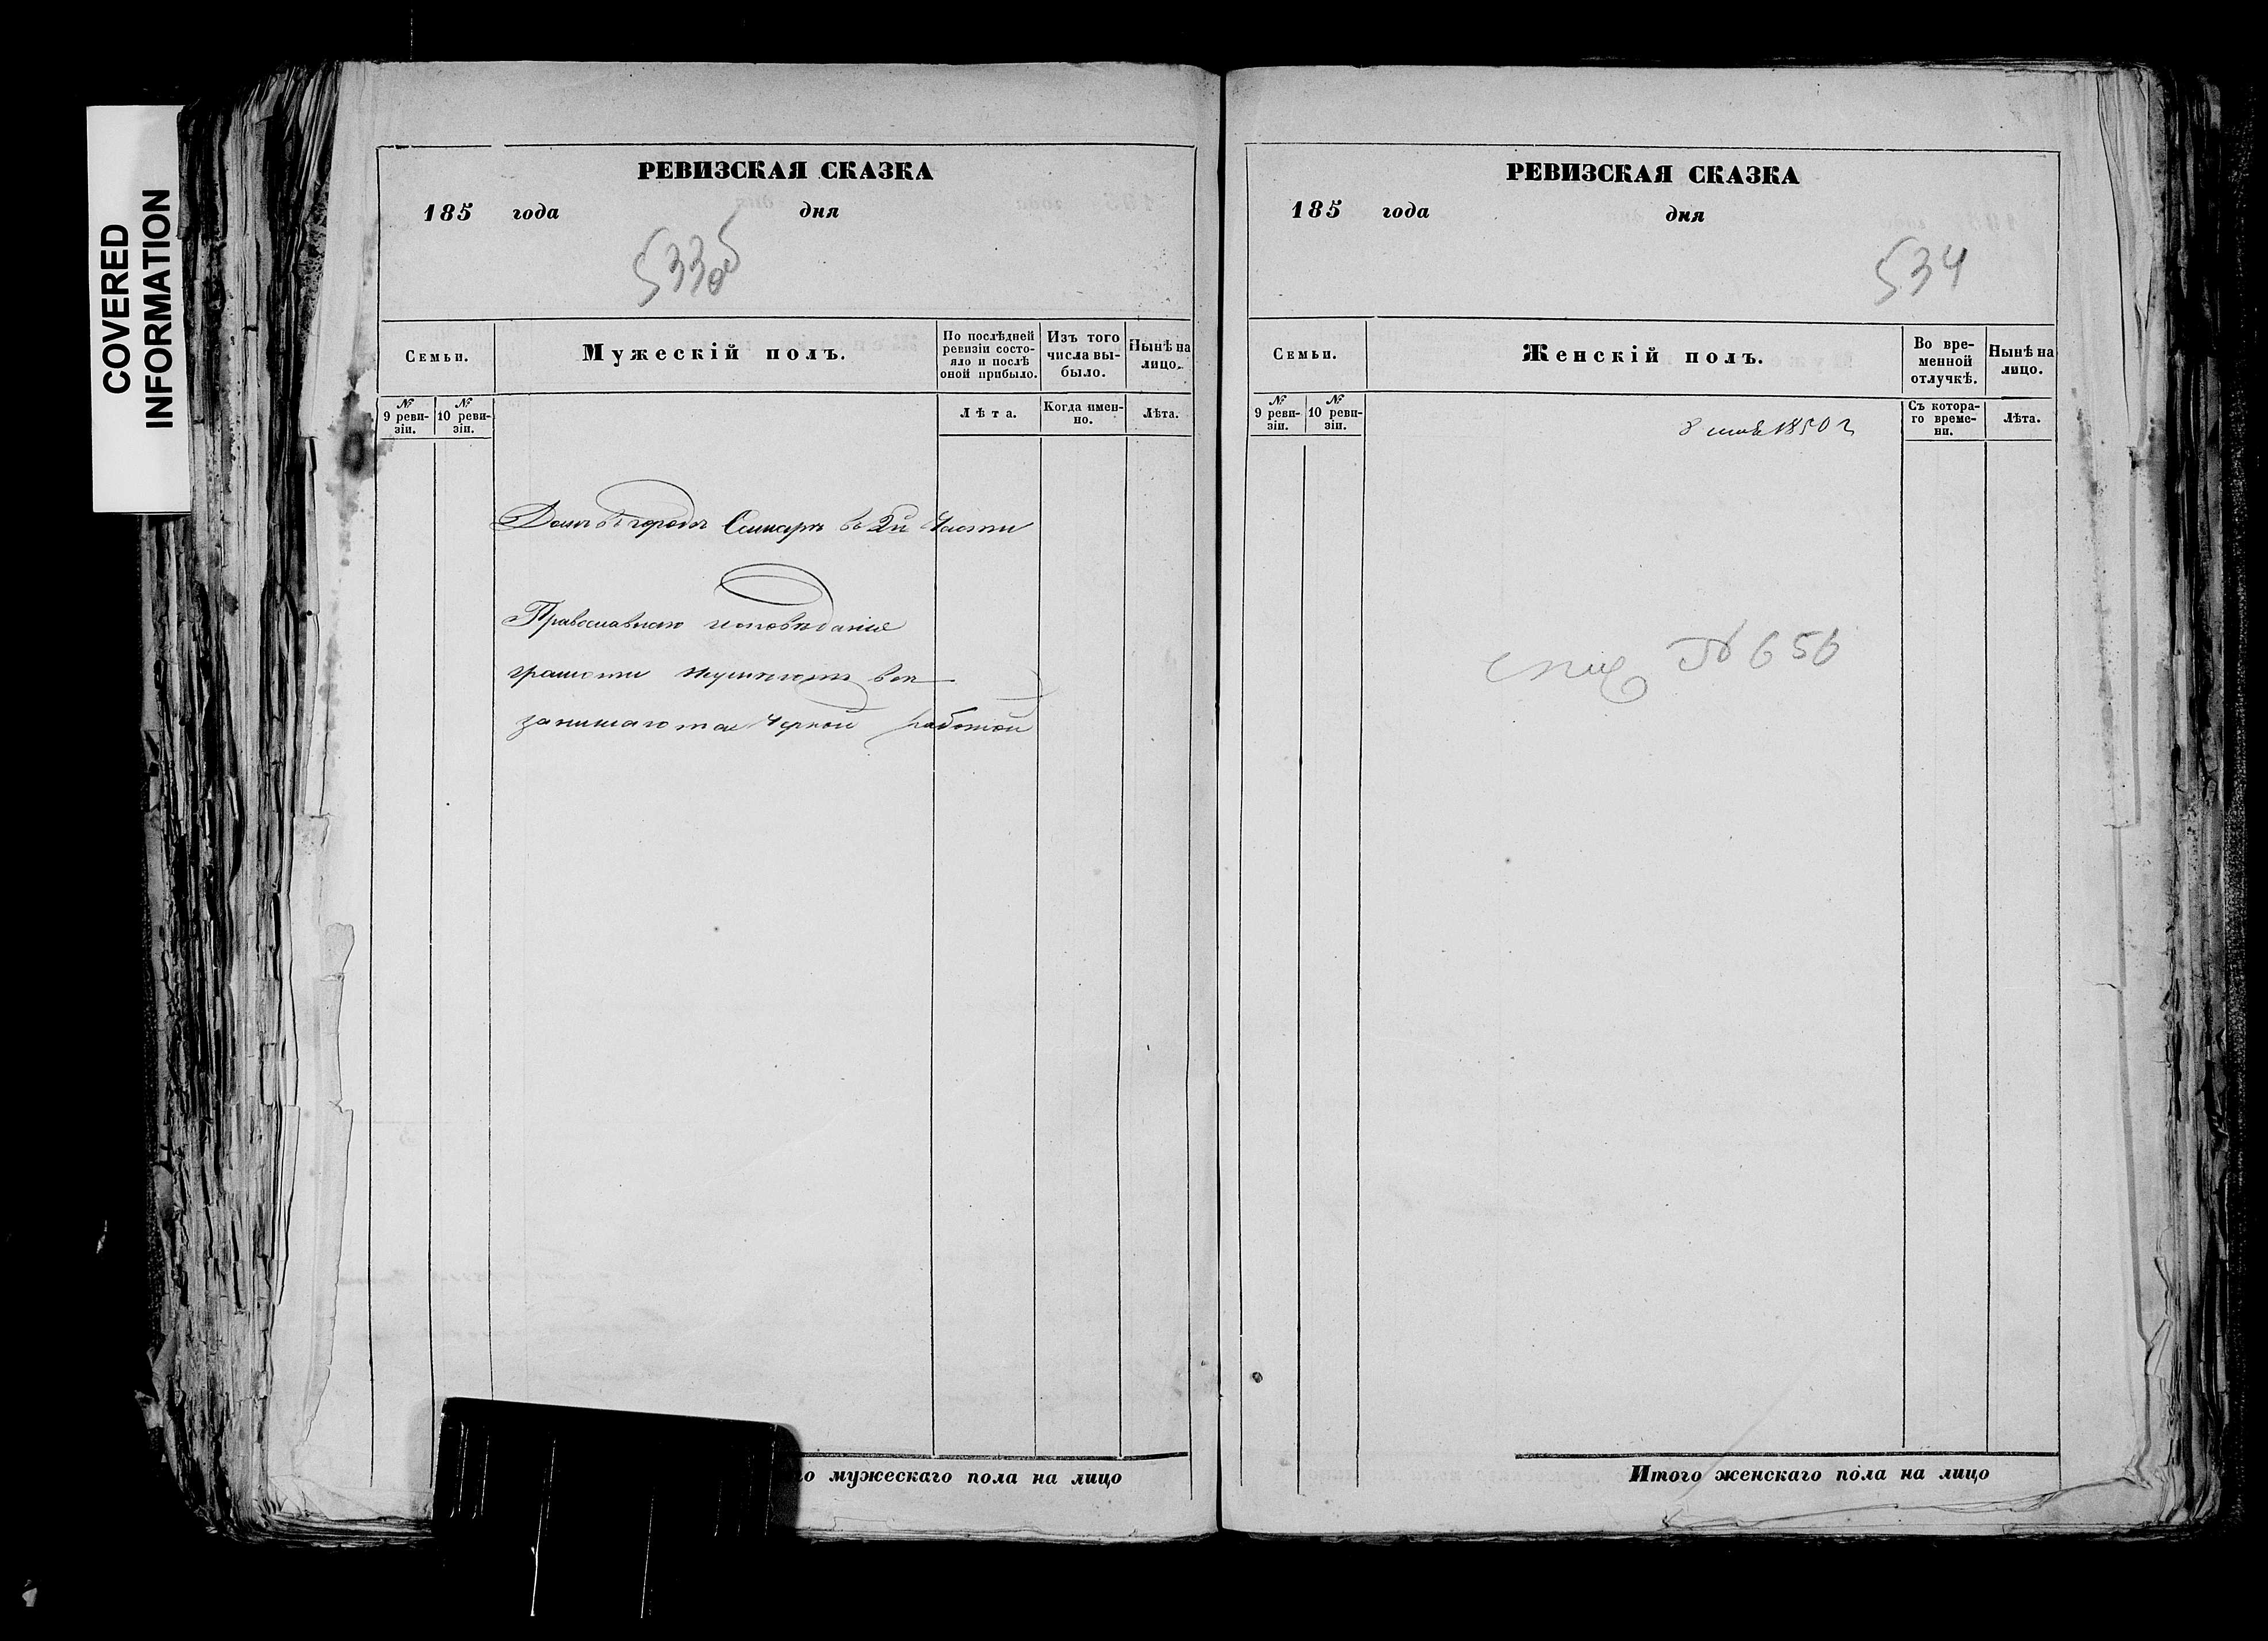 COVERED
INFORMATION
РЕВИЗСКАЯ СКАЗКА
185 года дня
533об
Семьи.
Мужескій полъ.
По послѣдней ревизіи состояло и послѣ оной прибыло.
Изъ того числа выбыло.
Нынѣ на лицо.
№ 9 ревизіи.
№ 10 ревизіи.
Лѣта.
Когда именно.
Лѣта.
Домъ въ городѣ Самарѣ въ 2й Части
Православнаго исповѣданія
грамоти
занимаются Черной работой
о мужескаго пола на лицо
РЕВИЗСКАЯ СКАЗКА
185 года дня
534
Семьи.
Женскій полъ.
Во временной отлучкѣ.
Нынѣ на лицо.
№ 9 ревизіи.
№ 10 ревизіи.
Съ котораго времени.
Лѣта.
8 1850 г
№ 656
Итого женскаго пола на лицо